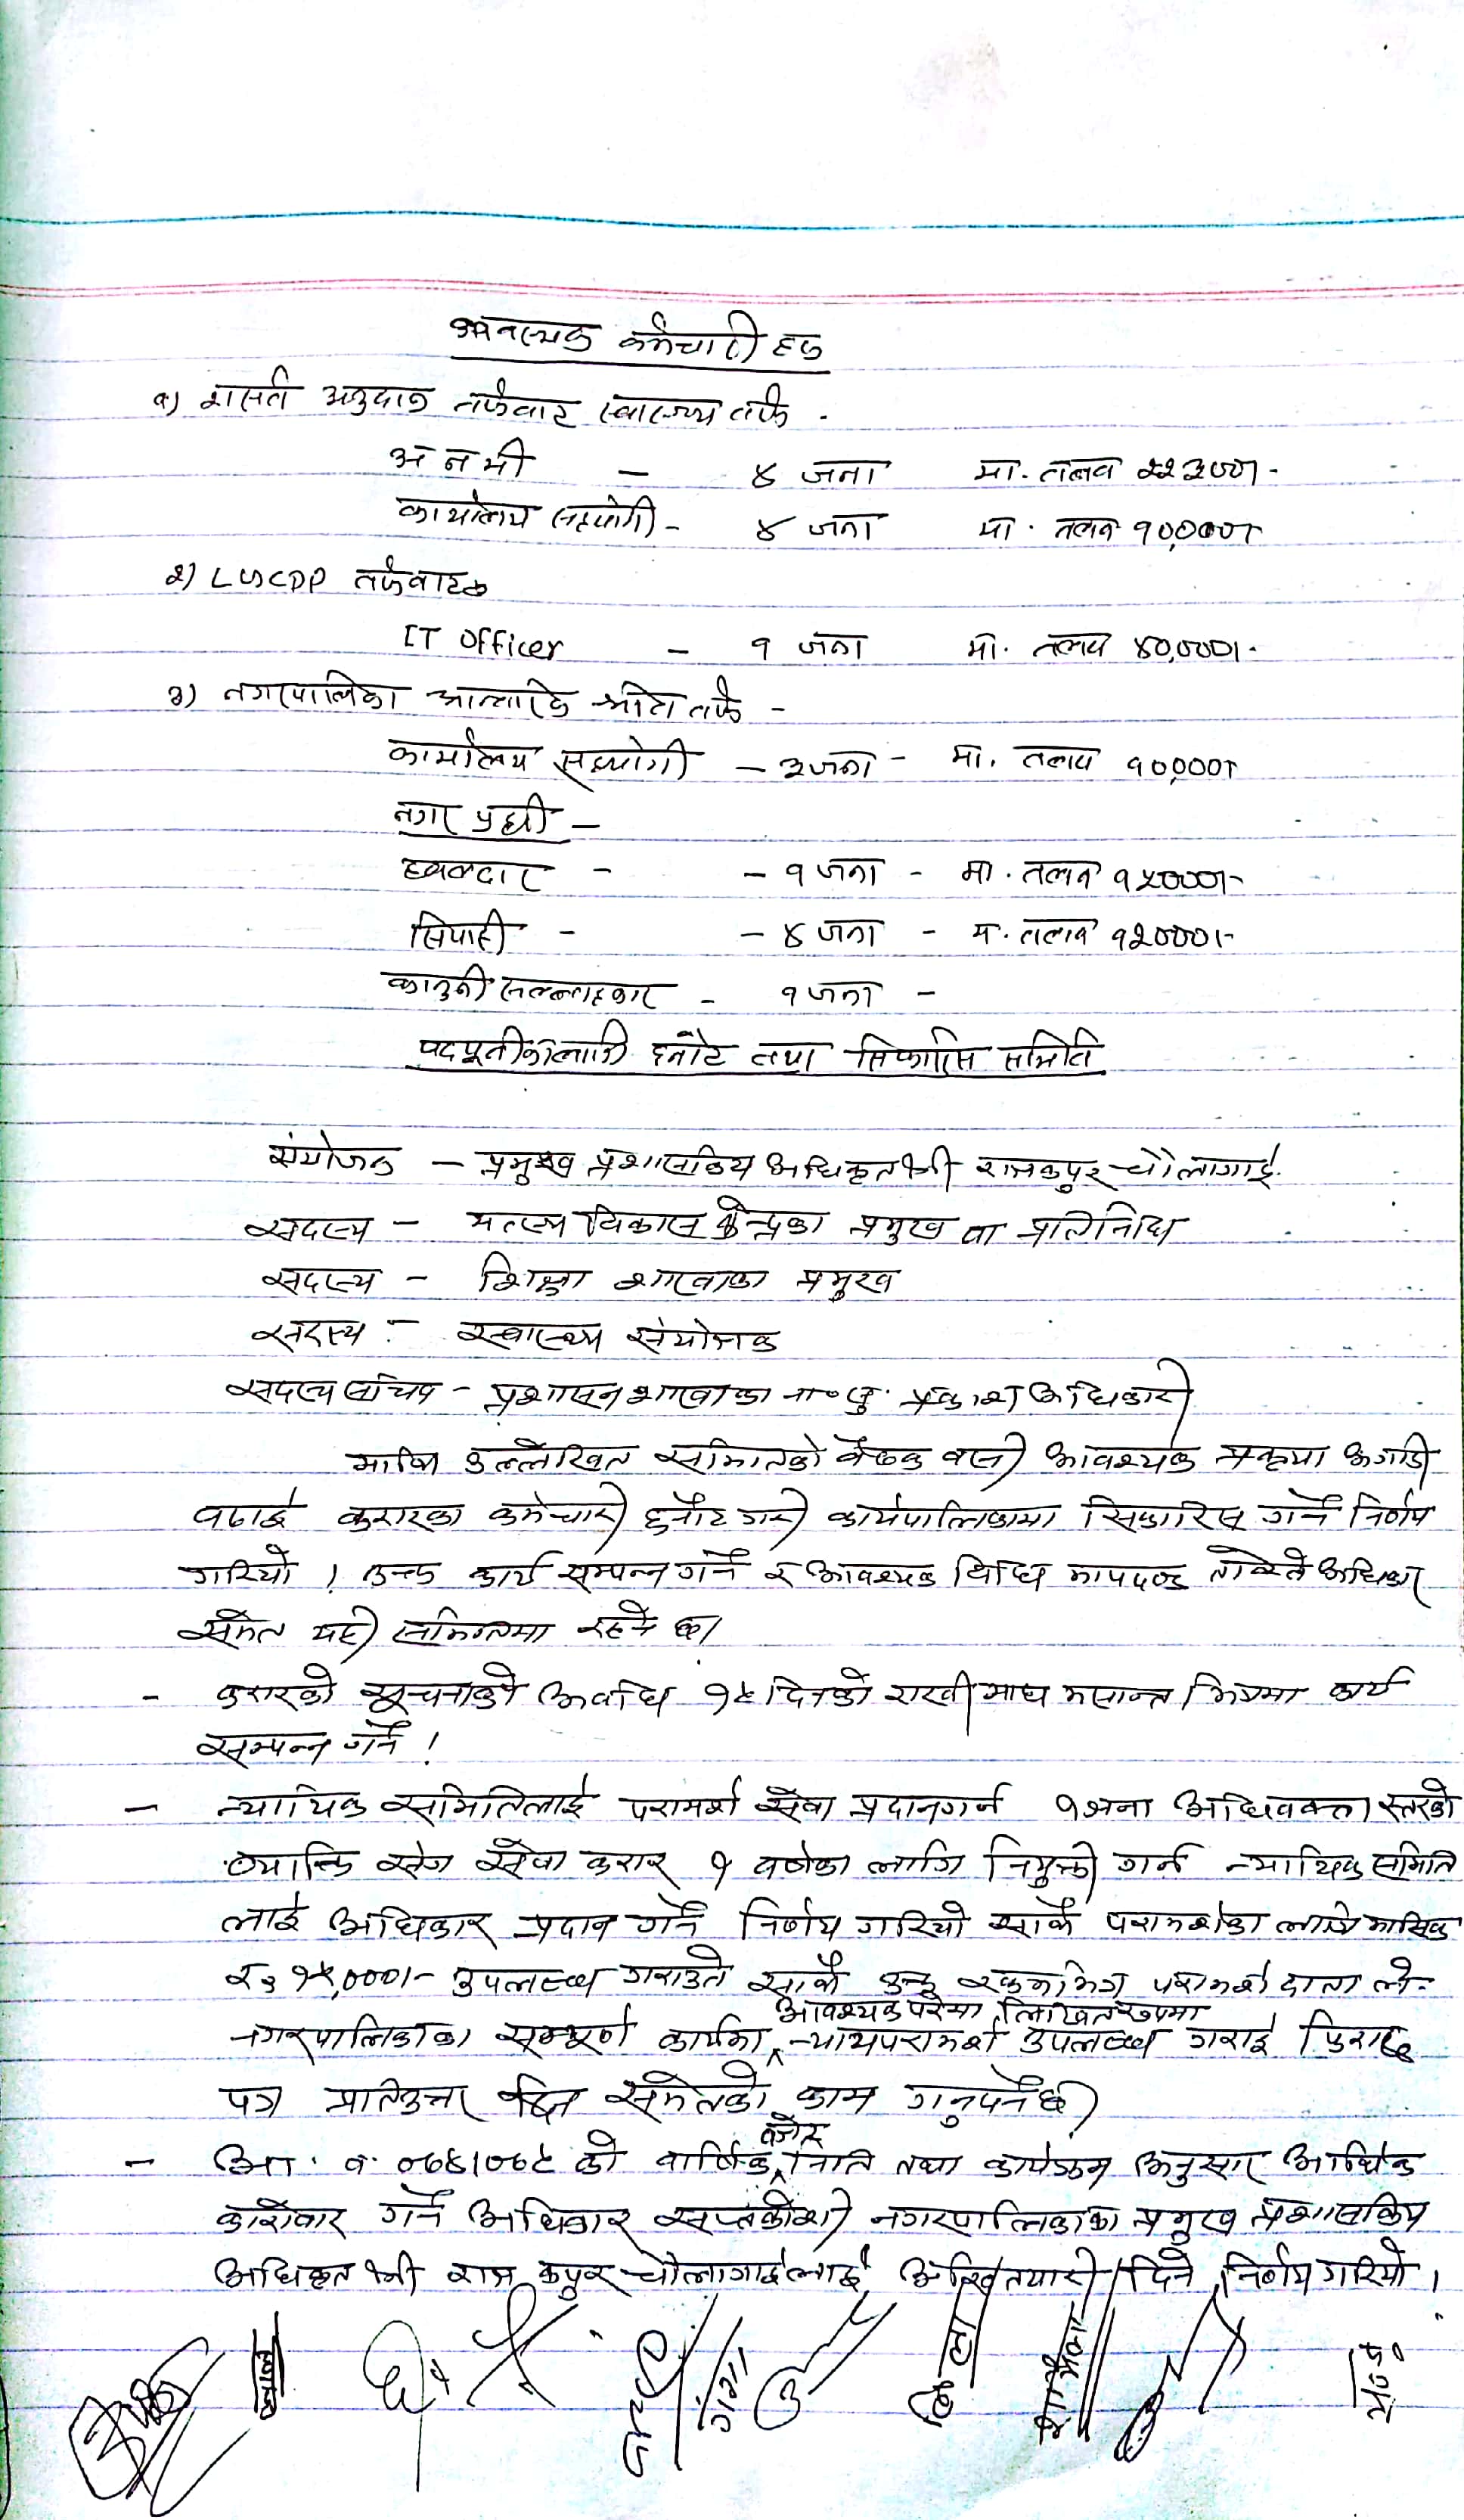 आवश्यक कर्मचारी हरु
१) शसर्त अनुदान तर्फवाट स्वास्थ्य तर्फ -
अ न मी - ४ जना मा. तलव
कार्यालय सहयोगी - ४ जना मा. तलव १०,०००।
२) LGCDP तर्फवाट
IT Officer - १ जना मा. तलव ४०,०००।-
३) नगरपालिका आन्तरिक श्रोत तर्फ -
कार्यालय सहयोगी - ३ जना - मा. तलव १०,०००।
नगर प्रहरी -
हवल्दार - - १ जना - मा. तलव १५०००।-
सिपाही - - ४ जना - मा. तलव १२०००।-
कानुनी सल्लाहकार - १ जना -
पदपूर्तीकोलागि छनौट तथा सिफारिस समिति
संयोजक - प्रमुख प्रशासकिय अधिकृत श्री राजकपुर चौलागाई
सदस्य - मत्स्य विकास केन्द्रका प्रमुख वा प्रतिनिधि
सदस्य - शिक्षा शाखाका प्रमुख
सदस्य - स्वास्थ्य संयोजक
सदस्य सचिव - प्रशासन शाखाका ना॰सु. प्रकाश अधिकारी
माथि उल्लेखित समितिको बैठक वसी आवश्यक प्रकृया अगाडी
वढाई करारका कर्मचारी छनौट गरी कार्यपालिकामा सिफारिस गर्ने निर्णय
गरियो । उक्त कार्य सम्पन्न गर्ने र आवश्यक विधि मापदण्ड तोक्ने अधिकार
समेत यही समितिमा रहने छ।
- करारको सूचनाको अवधि १५ दिनको राखी माघ मसान्त भित्रमा कार्य
सम्पन्न गर्ने ।
- न्यायिक समितिलाई परामर्श सेवा प्रदान गर्न १ जना अधिवक्ता स्तरको
व्यक्ति सँग सेवा करार १ वर्षका लागि नियुक्ती गर्न न्यायिक समिति
लाई अधिकार प्रदान गर्ने निर्णय गरियो साथै परामर्शका लागि मासिक
रु १५,०००।- उपलब्ध गराउने साथै उक्त रकमभित्र परामर्श दाता ले
आवश्यक परेमा लिखित रुपमा
नगरपालिकाका सम्पूर्ण कार्यमा न्यायपरामर्श उपलब्ध गराई फिराद
पत्र प्रतिउत्तर दिन समेतको काम गर्नुपर्नेछ।
वजेट
- आ. व. ०७४।०७५ को वार्षिक निति तथा कार्यक्रम अनुसार आर्थिक
कारोवार गर्ने अधिकार सप्तकोशी नगरपालिकाका प्रमुख प्रशासकिय
अधिकृत श्री राज कपुर चौलागाईलाई अख्तियारी दिने निर्णय गरियो ।